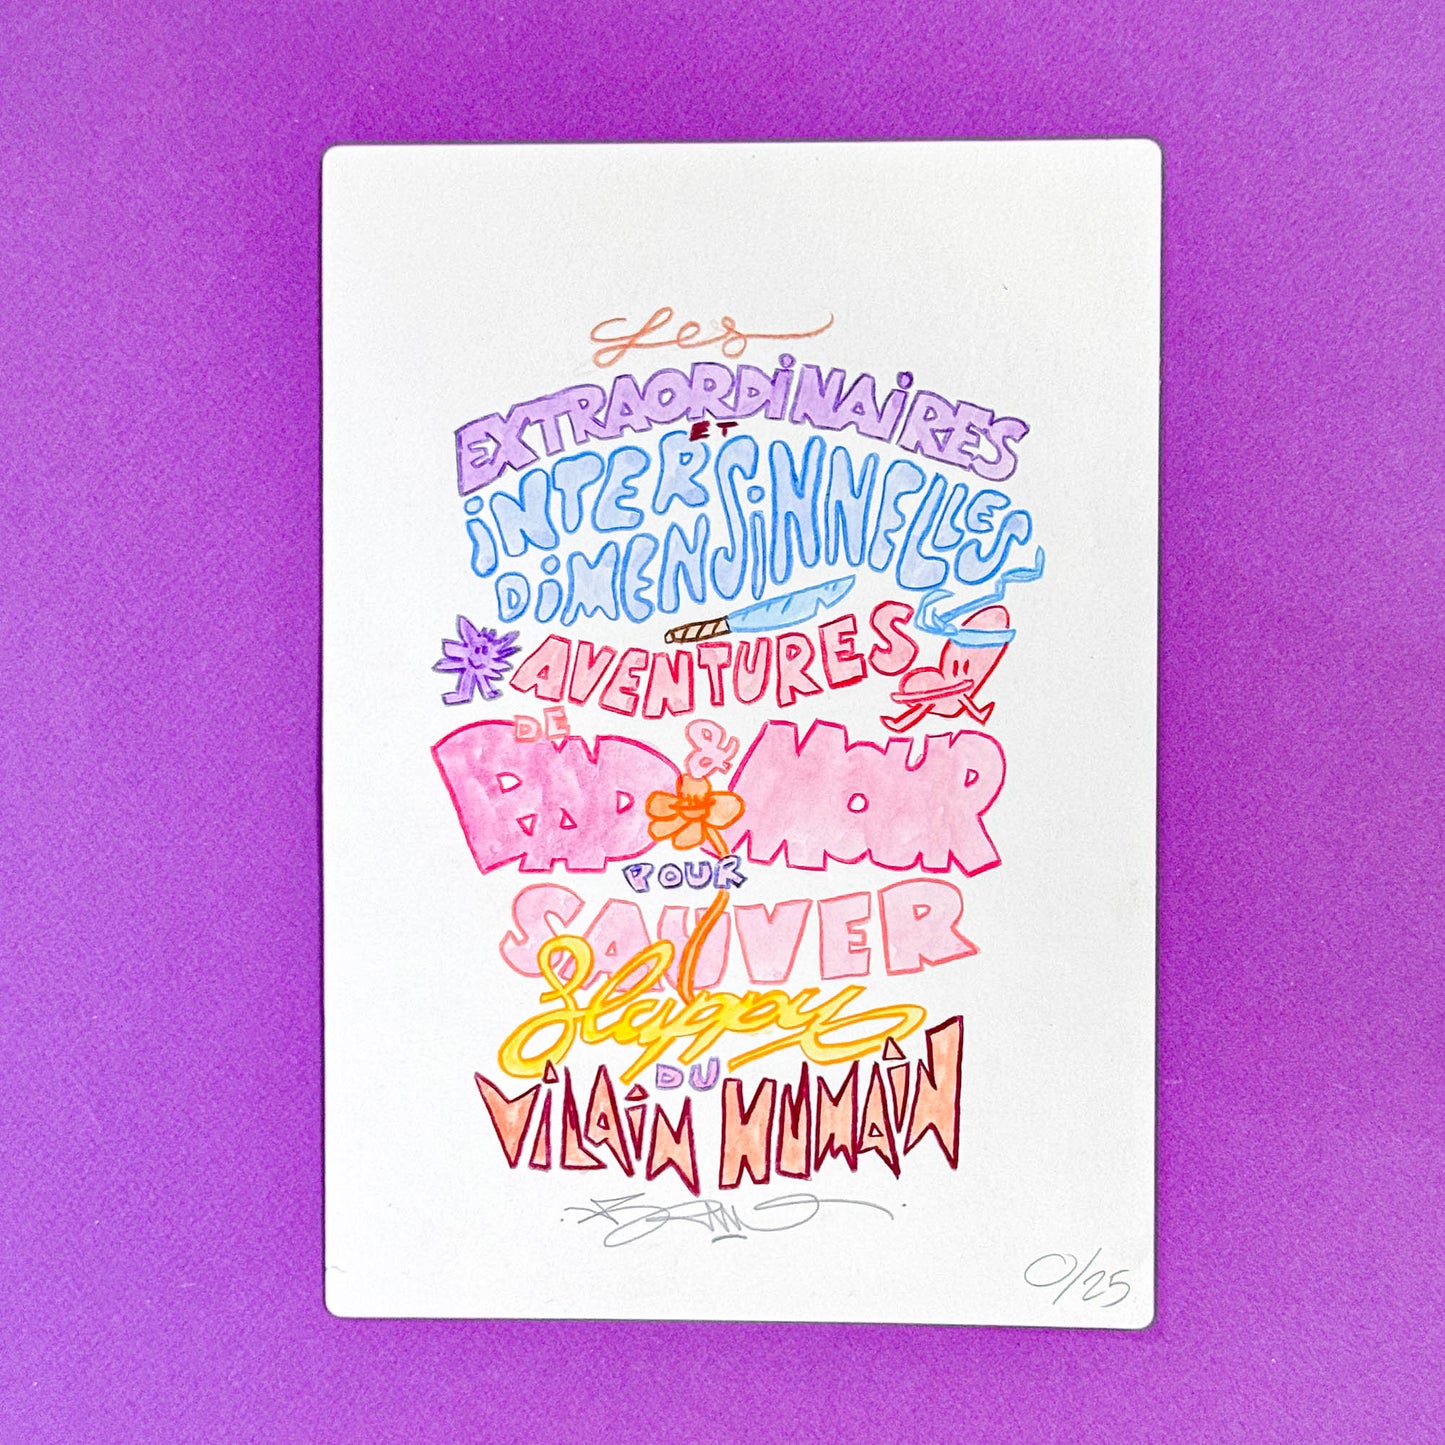 Les
EXTRAORDiNAiRES
ET
iNTER
DiMENSiNNELLES
AVENTURES
DE
BAD & MOUR
POUR
SAUVER
Slappy
DU
ViLAiN HUMAiN
0/25